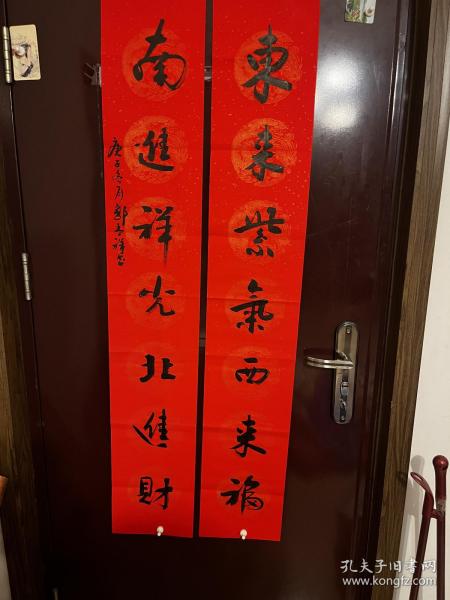 東来紫氣西来福
南進祥光北進財
庚子冬月
孔夫子旧书网
www.kongfz.com